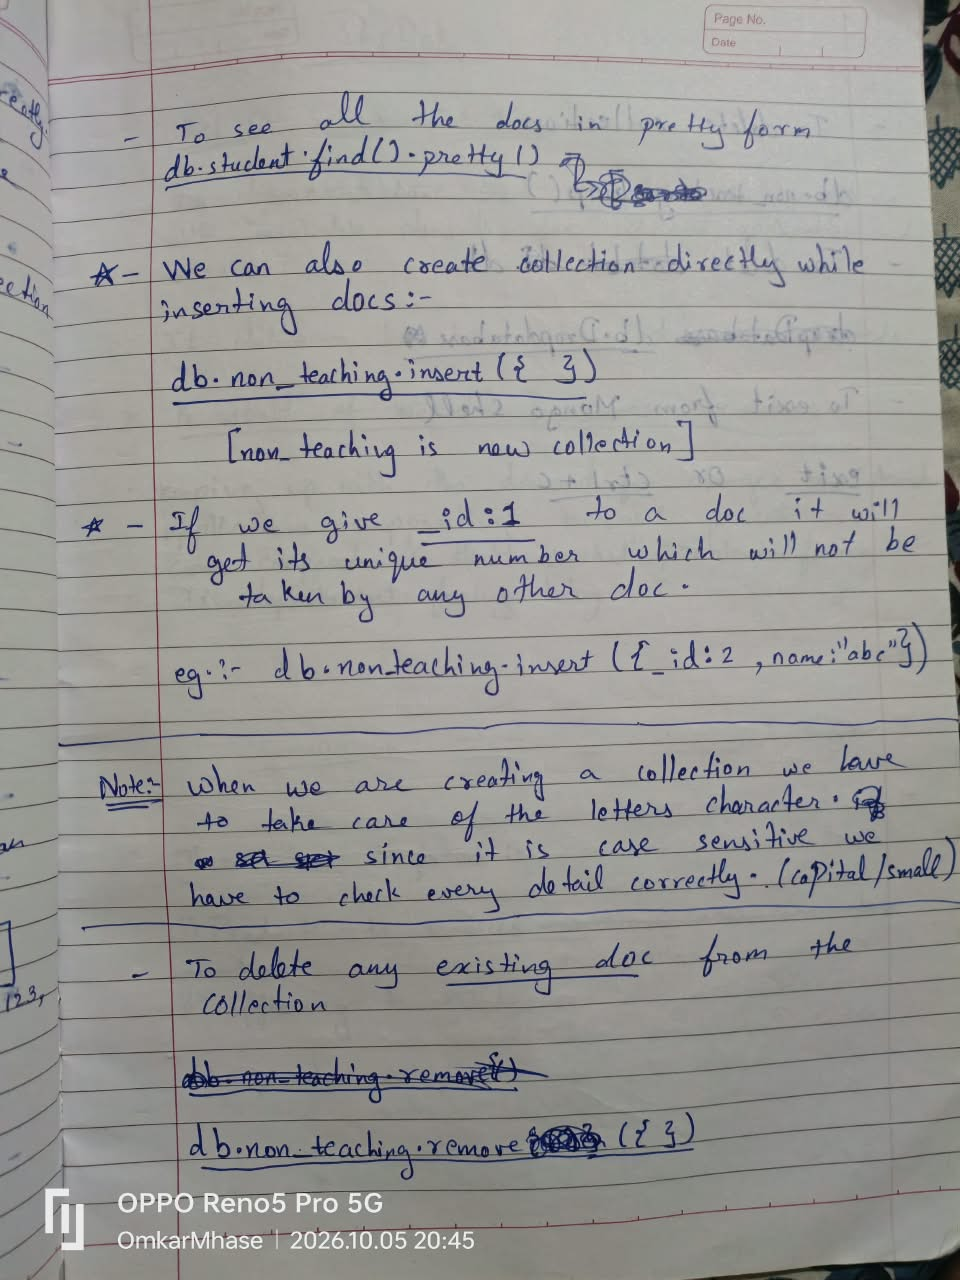 Page No.
Date
- To see all the docs in pretty form
db.student.find().pretty()
☆- We can also create collection directly while
inserting docs:-
db.non_teaching.insert({ })
[non_teaching is new collection]
☆ - If we give _id:1 to a doc it will
get its unique number which will not be
taken by any other doc.
eg.:- db.non_teaching.insert({_id:2 ,name:"abc"})
Note:- When we are creating a collection we have
to take care of the letters character.
since it is case sensitive we
have to check every detail correctly. (capital/small)
- To delete any existing doc from the
collection
db.non_teaching.remove()
db.non_teaching.remove ({ })
123,
OPPO Reno5 Pro 5G
OmkarMhase | 2026.10.05 20:45